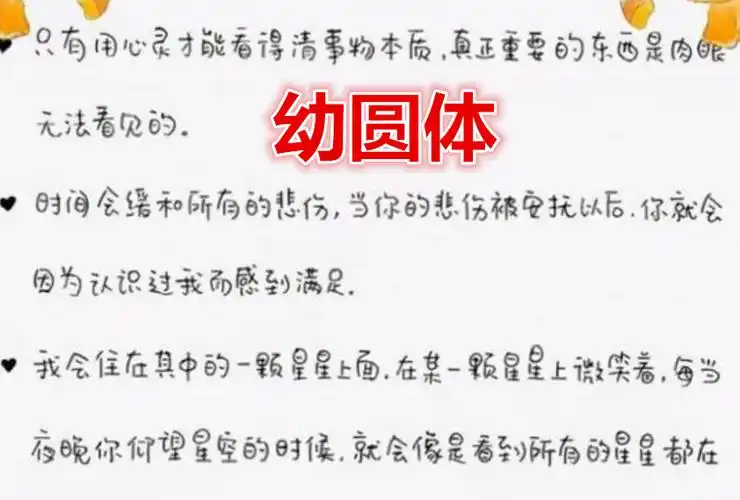 ♥ 只有用心灵才能看得清事物本质,真正重要的东西是肉眼
无法看见的。
幼圆体
♥ 时间会缓和所有的悲伤,当你的悲伤被安抚以后.你就会
因为认识过我而感到满足.
♥ 我会住在其中的一颗星星上面.在某一颗星星上微笑着,每当
夜晚你仰望星空的时候.就会像是看到所有的星星都在